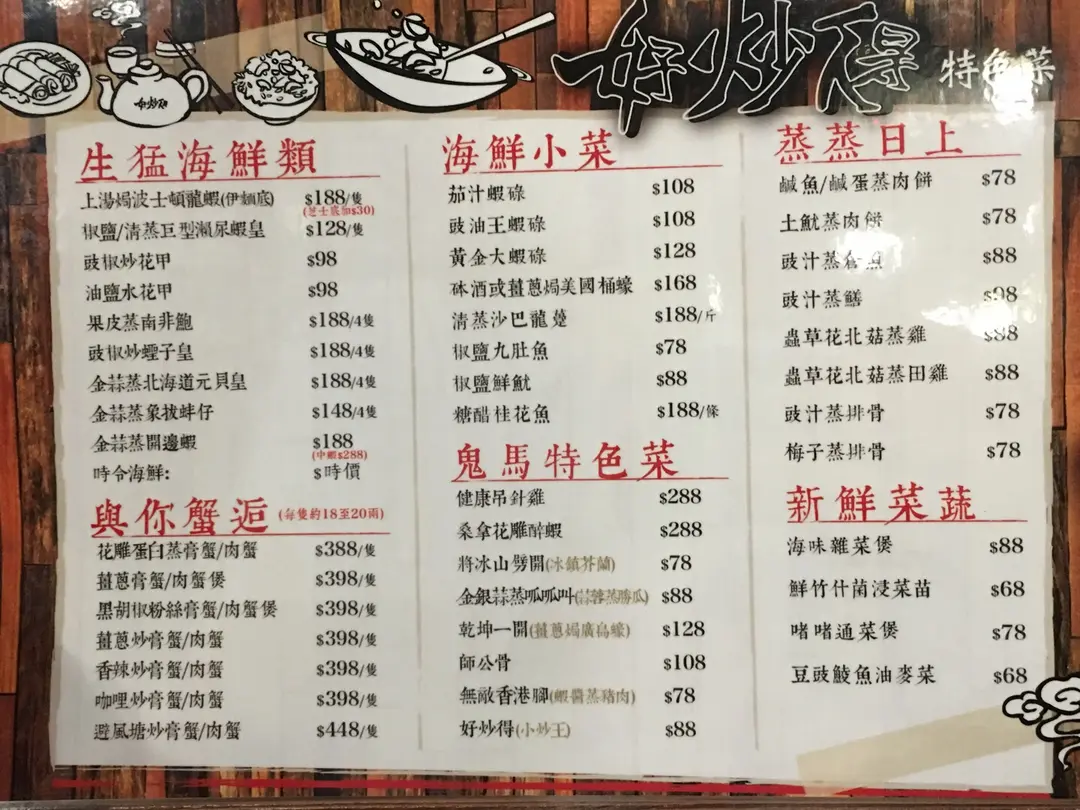 好炒得 特色菜
好炒得
生猛海鮮類
上湯焗波士頓龍蝦(伊麵底) $188/隻
(芝士底加$30)
椒鹽/清蒸巨型瀨尿蝦皇 $128/隻
豉椒炒花甲 $98
油鹽水花甲 $98
果皮蒸南非鮑 $188/4隻
豉椒炒蟶子皇 $188/4隻
金蒜蒸北海道元貝皇 $188/4隻
金蒜蒸象拔蚌仔 $148/4隻
金蒜蒸開邊蝦 $188
(中蝦$288)
時令海鮮: $時價
與你蟹逅 (每隻約18至20兩)
花雕蛋白蒸膏蟹/肉蟹 $388/隻
薑蔥膏蟹/肉蟹煲 $398/隻
黑胡椒粉絲膏蟹/肉蟹煲 $398/隻
薑蔥炒膏蟹/肉蟹 $398/隻
香辣炒膏蟹/肉蟹 $398/隻
咖哩炒膏蟹/肉蟹 $398/隻
避風塘炒膏蟹/肉蟹 $448/隻
海鮮小菜
茄汁蝦碌 $108
豉油王蝦碌 $108
黃金大蝦碌 $128
砵酒或薑蔥焗美國桶蠔 $168
清蒸沙巴龍躉 $188/斤
椒鹽九肚魚 $78
椒鹽鮮魷 $88
糖醋桂花魚 $188/條
鬼馬特色菜
健康吊針雞 $288
桑拿花雕醉蝦 $288
將冰山劈開(冰鎮芥蘭) $78
金銀蒜蒸呱呱叫(蒜蓉蒸勝瓜) $88
乾坤一開(薑蔥焗廣島蠔) $128
師公骨 $108
無敵香港腳(蝦醬蒸豬肉) $78
好炒得(小炒王) $88
蒸蒸日上
鹹魚/鹹蛋蒸肉餅 $78
土魷蒸肉餅 $78
豉汁蒸倉魚 $88
豉汁蒸鱔 $98
蟲草花北菇蒸雞 $88
蟲草花北菇蒸田雞 $88
豉汁蒸排骨 $78
梅子蒸排骨 $78
新鮮菜蔬
海味雜菜煲 $88
鮮竹什菌浸菜苗 $68
啫啫通菜煲 $78
豆豉鯪魚油麥菜 $68